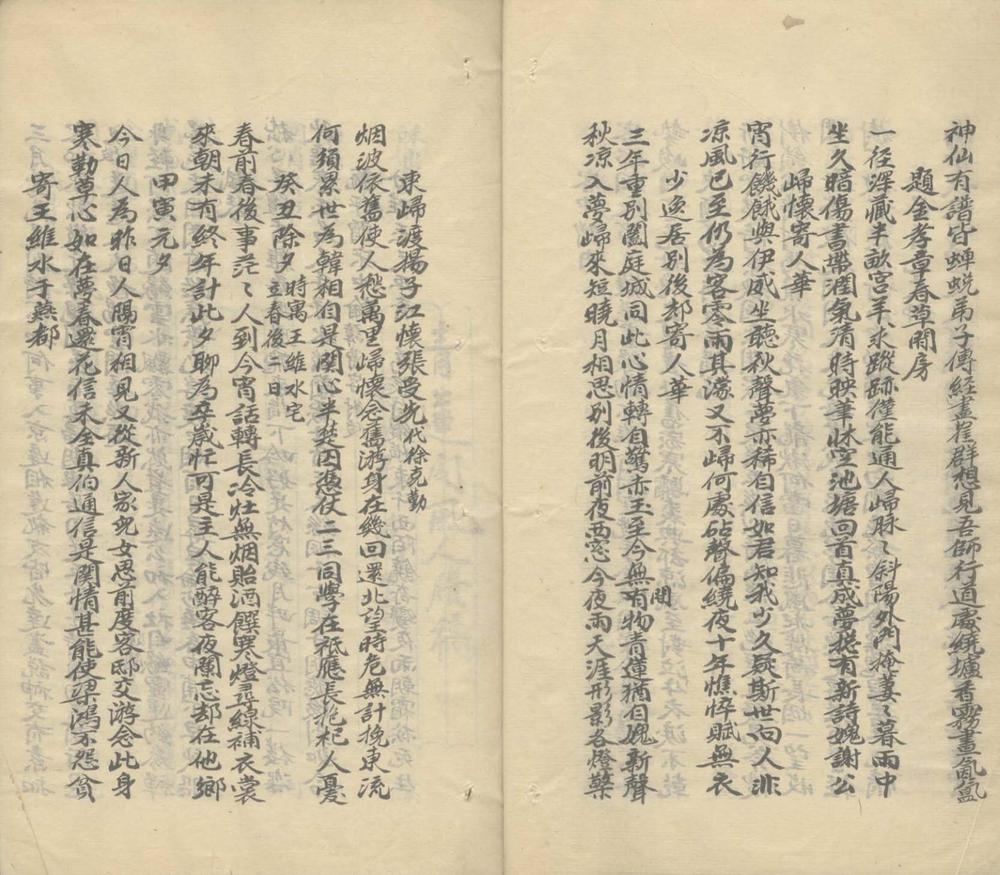 神仙有譜皆蟬蛻弟子傳經盡崔群想見吾師行道處繞壚香霧晝氤氳
題金孝章春草閒房
一徑深藏半畝宮羊求蹤跡僅能通人歸脉〻斜陽外門掩萋〻暮雨中
坐久暗傷書帶潤氣清時映筆牀空池塘回首真成夢縱有新詩媿謝公
歸懷寄人華
宵行饑餓與伊威坐聽秋聲夢亦稀自信如君知我少久疑斯世向人非
凉風已至仍為客零雨其濛又不歸何處砧聲偏繞夜十年憔悴賦無衣
少逸居別後却寄人華
三年重別闔庭城同此心情轉自驚赤玉至今無有物青蓮猶自媿新聲
間
秋凉入夢歸來短曉月相思別後明前夜西窓今夜雨天涯形影各燈檠
東歸渡揚子江懷張受先代徐克勤
烟波依舊使人愁萬里歸懷念舊游身在幾回還北望時危無計挽東流
何須累世為韓相自是関心半楚囚憑仗二三同學在祗應長抱杞人憂
癸丑除夕時寓王維水宅立春後二日
春前春後事茫〻人到今宵話轉長冷灶無烟貽酒饌寒燈尋線補衣裳
來朝未有終年計此夕聊為卒歲忙可是主人能醉客夜闌忘却在他鄉
甲寅元夕
今日人為昨日人隔宵相見又從新人家兒女思前度客邸交游念此身
寒勒草心如在夢春遲花信未全真伯通信是関情甚能使梁鴻不怨貧
寄王維水于燕都